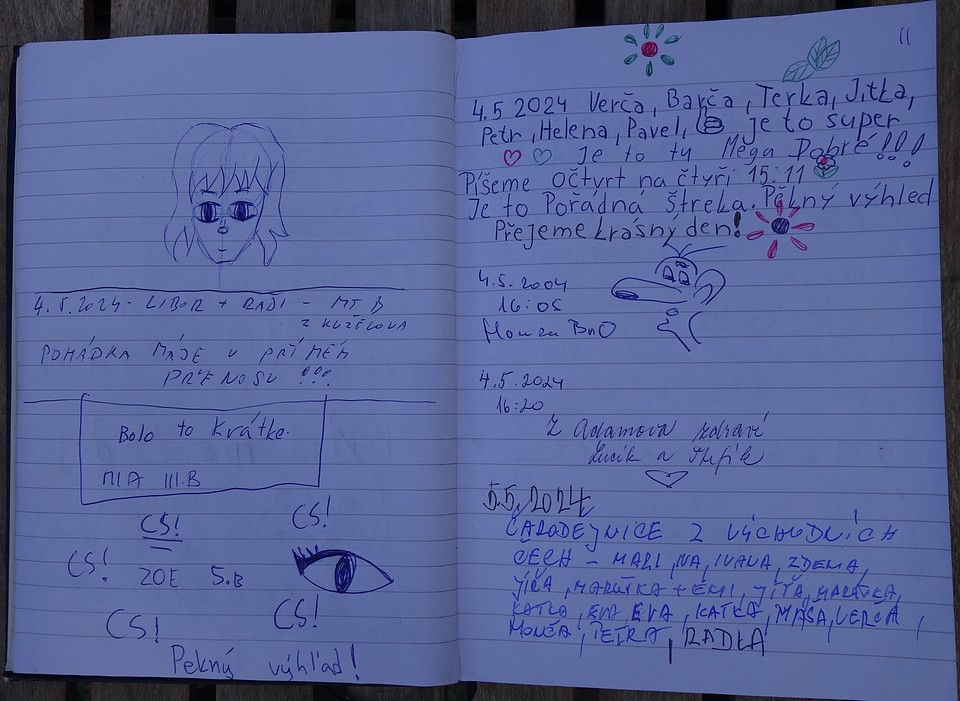 4.5.2024 - LIBOR + RADI - MTB
Z KUŽELOVA
POHÁDKA MÁJE V PŘÍMÉM
PŘENOSU !!!
Bolo to krátke.
MIA III.B
CS!
CS!
CS!
ZOE 5.B
CS!
CS!
Pekný výhľad!
11
4.5 2024 Verča, Barča, Terka, Jitka,
Petr, Helena, Pavel, je to super
Je to tu Mega Dobré!!!
Píšeme Očtvrt na čtyři 15:11
Je to Pořádná Štreka. Pěkný výhled
Přejeme krásný den!
4.5.2004
16:05
Honza BnO
4.5.2024
16:20
Z Adamova zdraví
Lucik a
5.5.2024
ČARODEJNICE Z VÝCHODNÍCH
ČECH - MALI, NA, IVANA, ZDENA,
JIŘA, MARUŠKA + EMI, JÍŤA,
KATKA, EVA EVA, KATKA, MÁŠA, VERČA,
MONČA, PETRA, RADKA